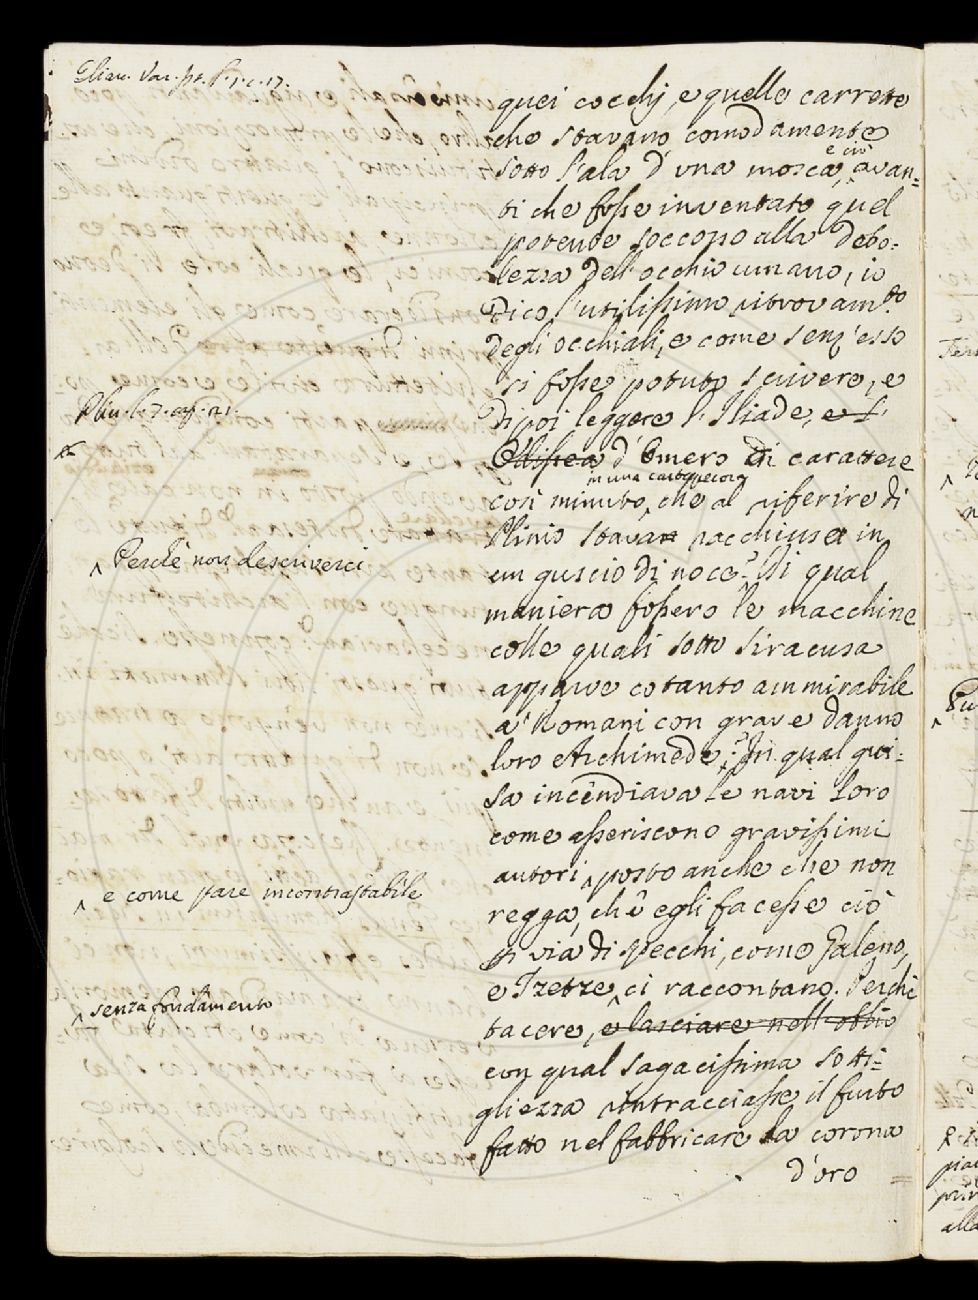 Elian. Var. hist. l. 1. c. 17.
quei cocchj, e quelle carrette
che stavano comodamente
e ciò
sotto l'ala d'una mosca, avan=
ti che fosse inventato quel
potente soccorso alla debo=
lezza dell'occhio umano, io
dico l'utilissimo ritrovam.to
degli occhiali, e come senz'esso
si fosse potuto scrivere, e
Plin. l. 7. cap. 21.
di poi leggere l'Iliade, e l'
Odissea d'Omero di carattere
in una cartapecora
così minuto, che al riferire di
Plinio stava racchiusa in
Perchè non descriverci
un guscio di noce? Di qual
maniera fossero le macchine
colle quali sotto Siracusa
apparve cotanto ammirabile
a' Romani con grave danno
loro Archimede; In qual gui=
sa incendiava le navi loro
come asseriscono gravissimi
autori, posto anche che non
e come pare incontrastabile
regga, che egli facesse ciò
per via di specchi, come Galeno,
e Tzetze ci raccontano. Perchè
senza fondamento
tacere, e lasciare nell'obblio
con qual sagacissima sotti=
gliezza rintracciasse il furto
fatto nel fabbricare la corona
d'oro